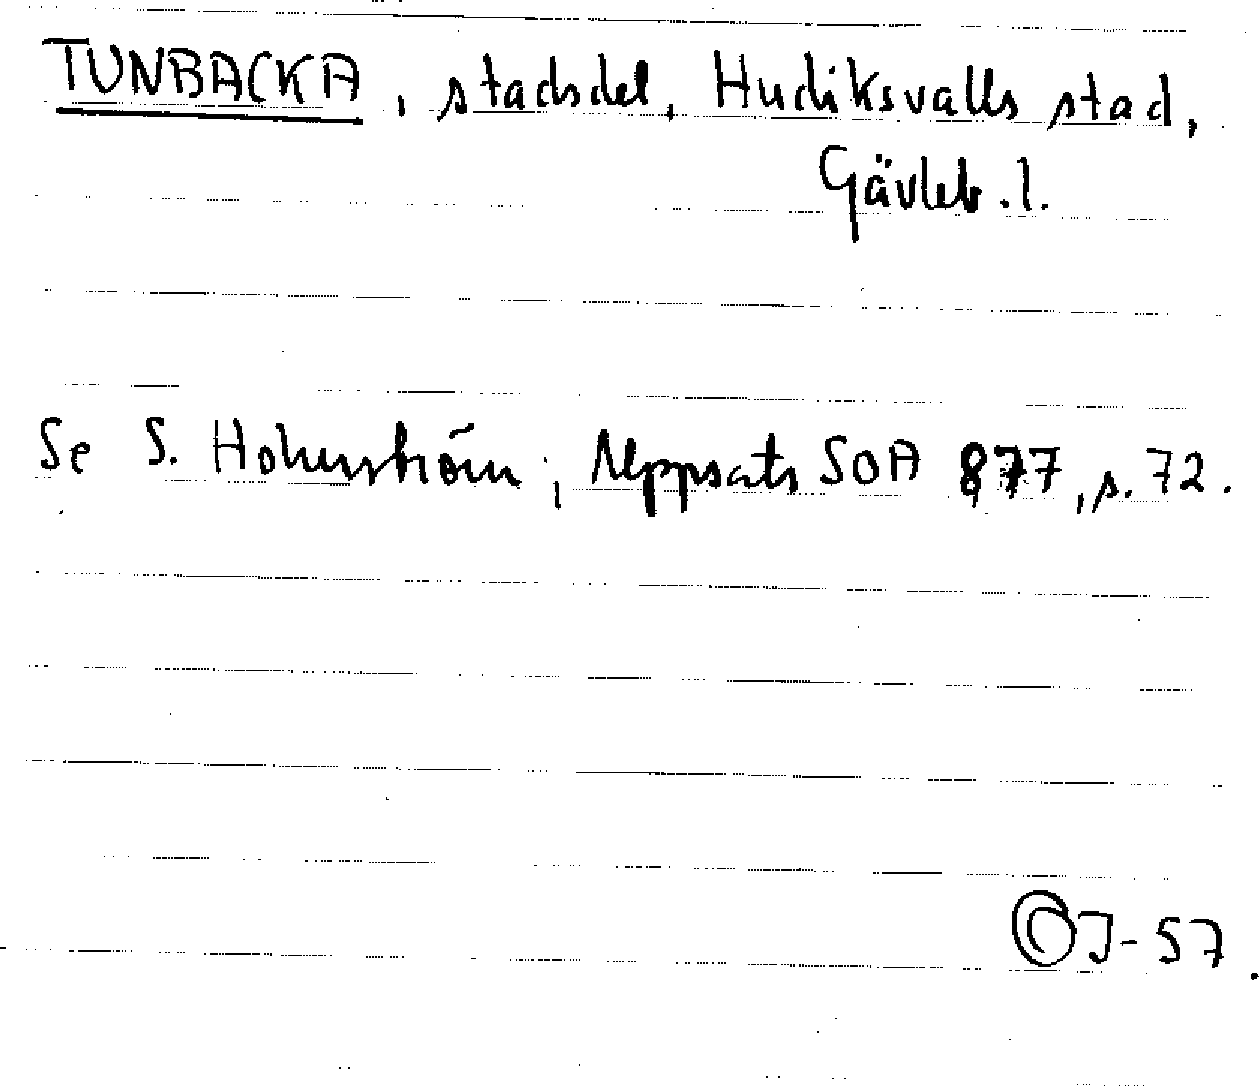 TUNBACKA, stadsdel, Hudiksvalls stad,
Gävleb. l.
Se S. Holmström; Uppsats SOA 877, s. 72.
J-57.